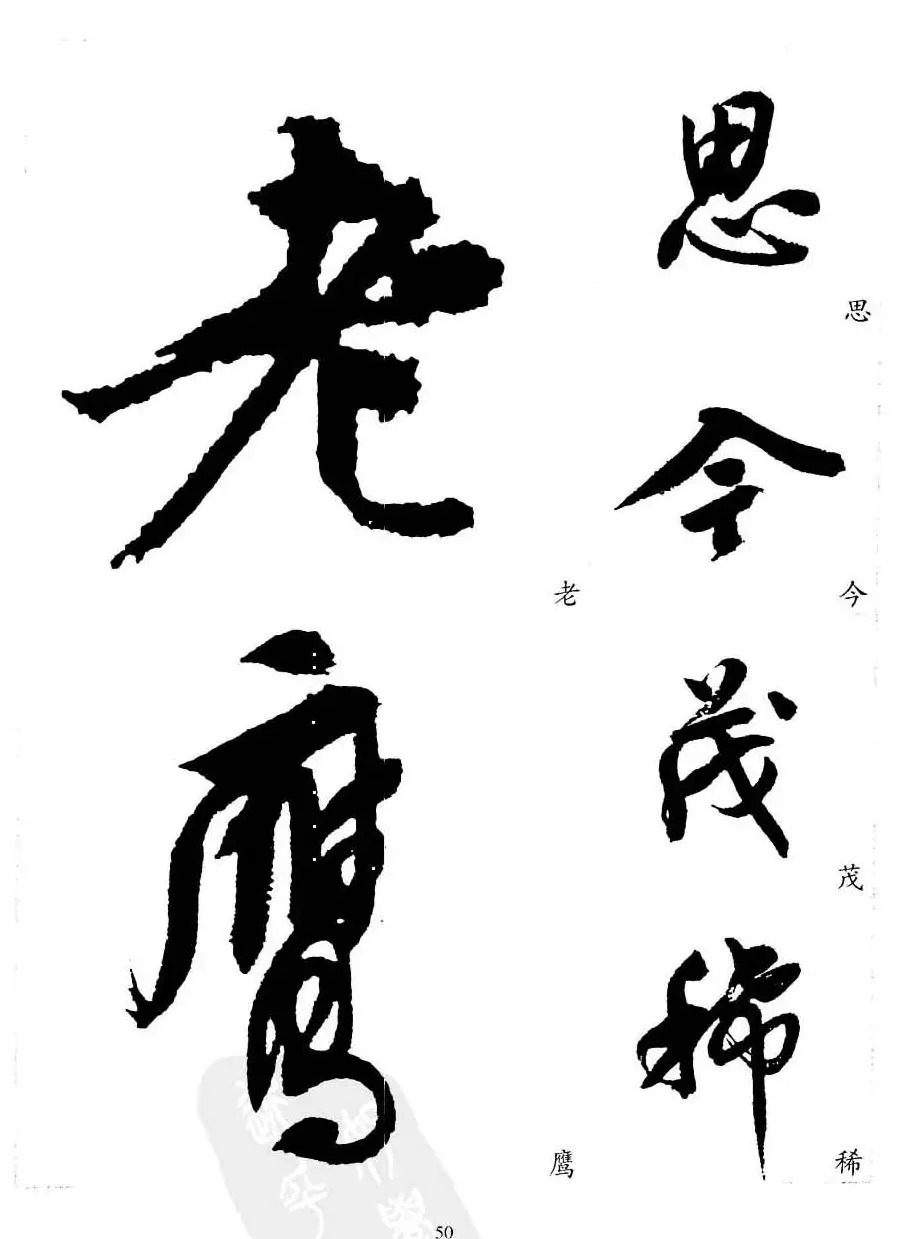 思
思
今
今
茂
茂
稀
稀
老
老
鹰
鹰
50